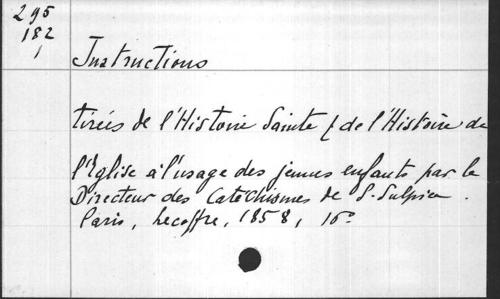 295
182
1
Instructions
tirées de l'Histoire Sainte & de l'Histoire de
l'Eglise à l'usage des jeunes enfants par le
Directeur des Catéchismes de S-Sulpice.
Paris, Lecoffre, 1858, 16º